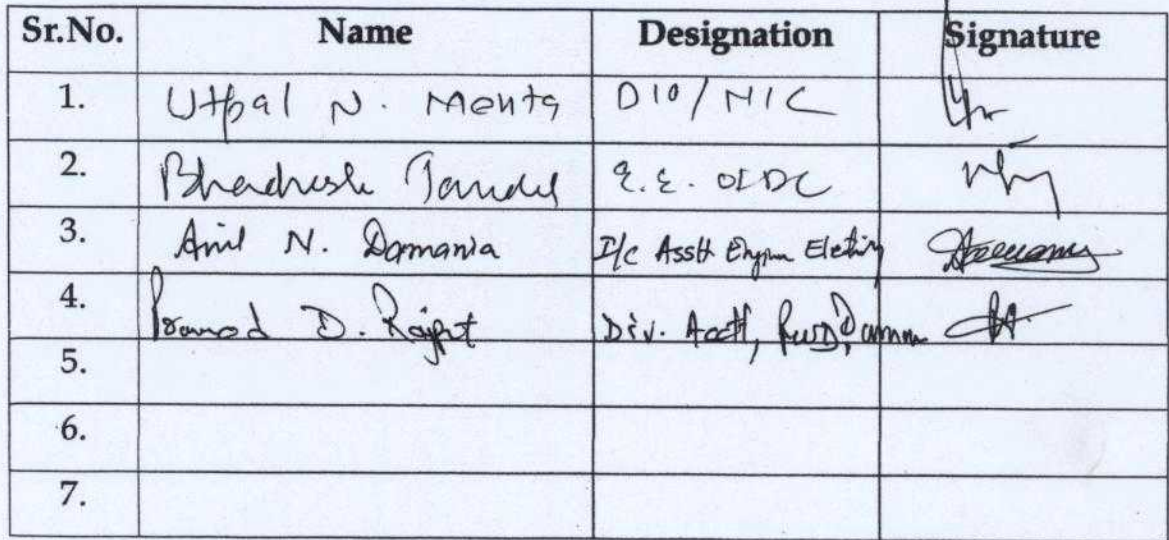 Sr.No. Name Designation Signature
1. Utpal N. Mehta DIO/NIC
2. Bhadresh Tandel E.E. OIDC
3. Anil N. Damania I/c Asstt Engineer
4. Pramod D. Rajput Div. Acctt, PWD, Daman
5.
6.
7.